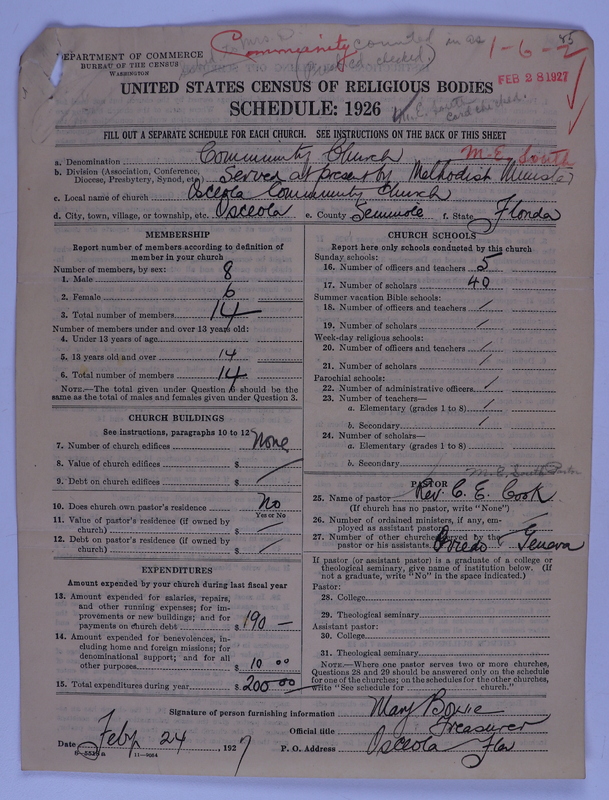 Community counted in as 1-6-2 45
(checked)
DEPARTMENT OF COMMERCE
BUREAU OF THE CENSUS
WASHINGTON
FEB 28 1927
UNITED STATES CENSUS OF RELIGIOUS BODIES
SCHEDULE: 1926
M.E. South
card checked.
FILL OUT A SEPARATE SCHEDULE FOR EACH CHURCH. SEE INSTRUCTIONS ON THE BACK OF THIS SHEET
a. Denomination Community Church M-E. South
b. Division (Association, Conference, Diocese, Presbytery, Synod, etc.) Served at present by Methodist Minister
c. Local name of church Osceola Community Church
d. City, town, village, or township, etc. Osceola e. County Seminole f. State Florida
MEMBERSHIP
Report number of members according to definition of
member in your church
Number of members, by sex:
1. Male 8
2. Female 6
3. Total number of members 14
Number of members under and over 13 years old:
4. Under 13 years of age
5. 13 years old and over 14
6. Total number of members 14
NOTE.—The total given under Question 6 should be the
same as the total of males and females given under Question 3.
CHURCH BUILDINGS
See instructions, paragraphs 10 to 12
7. Number of church edifices None
8. Value of church edifices $
9. Debt on church edifices $
10. Does church own pastor's residence No
Yes or No
11. Value of pastor's residence (if owned by
church) $
12. Debt on pastor's residence (if owned by
church) $
EXPENDITURES
Amount expended by your church during last fiscal year
13. Amount expended for salaries, repairs,
and other running expenses; for im-
provements or new buildings; and for
payments on church debt $ 190 —
14. Amount expended for benevolences, in-
cluding home and foreign missions; for
denominational support; and for all
other purposes $ 10 00
15. Total expenditures during year $ 200 00
CHURCH SCHOOLS
Report here only schools conducted by this church
Sunday schools:
16. Number of officers and teachers 5
17. Number of scholars 40
Summer vacation Bible schools:
18. Number of officers and teachers /
19. Number of scholars /
Week-day religious schools:
20. Number of officers and teachers /
21. Number of scholars /
Parochial schools:
22. Number of administrative officers /
23. Number of teachers—
a. Elementary (grades 1 to 8) /
b. Secondary /
24. Number of scholars—
a. Elementary (grades 1 to 8)
b. Secondary
M.E. South Pastor
PASTOR
25. Name of pastor Rev. C. E. Cook
(If church has no pastor, write "None")
26. Number of ordained ministers, if any, em-
ployed as assistant pastors
27. Number of other churches served by the
pastor or his assistants Oviedo & Geneva
If pastor (or assistant pastor) is a graduate of a college or
theological seminary, give name of institution below. (If
not a graduate, write "No" in the space indicated.)
Pastor:
28. College
29. Theological seminary
Assistant pastor:
30. College
31. Theological seminary
NOTE.—Where one pastor serves two or more churches,
Questions 28 and 29 should be answered only on the schedule
for one of the churches; on the schedules for the other churches,
write "See schedule for church."
Signature of person furnishing information Mary Bowie
Official title Treasurer
Date Feby 24, 1927 P. O. Address Osceola Fla
8-551 a 11—9684